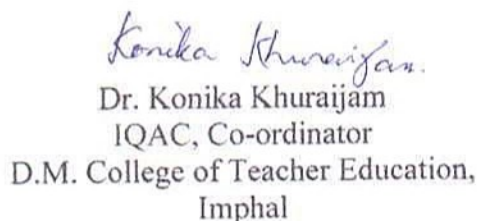 Konika Khuraijam.
Dr. Konika Khuraijam
IQAC, Co-ordinator
D.M. College of Teacher Education,
Imphal